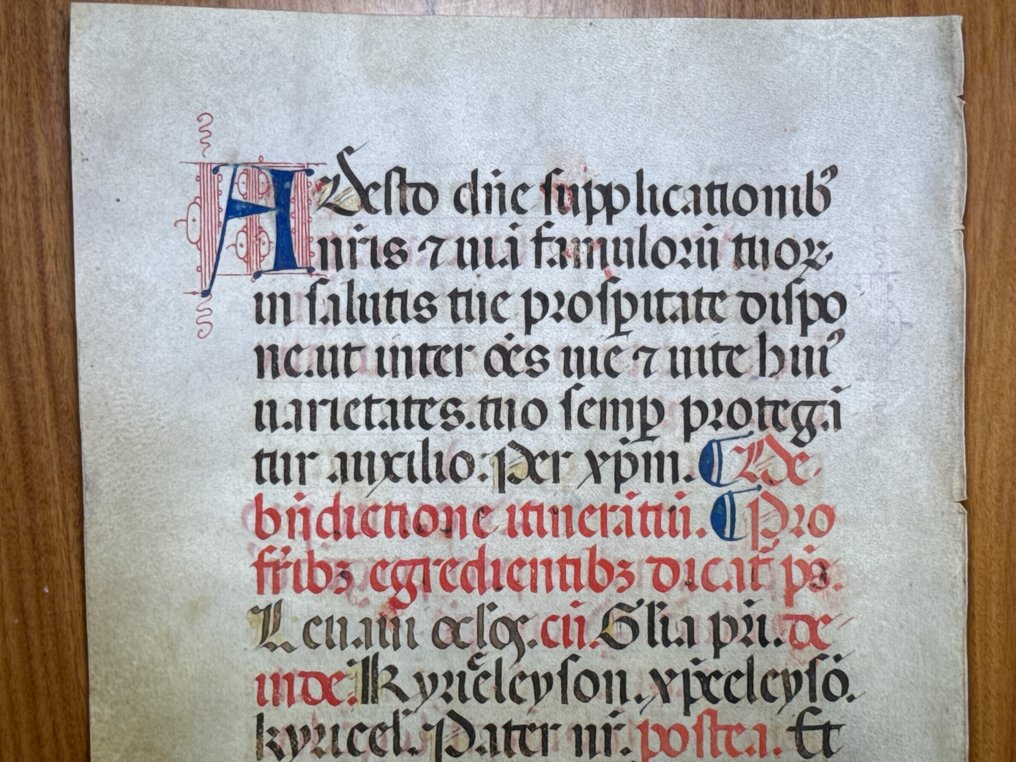 ADesto dn̄e supplicationibꝰ
nr̄is ⁊ uiā famulorū tuoꝝ
in salutis tue prosꝑitate dispo
ne.ut inter oēs uie ⁊ uite huiꝰ
uarietates.tuo semꝑ protegā
tur auxilio. Per xp̄m. ¶ De
bn̄dictione itinerātiū. ¶ Pro
fr̄ibꝫ egredientibꝫ dicat̄ pˢ.
Leuaui oc̄los. cū. Gl̄ia pr̄i. de
inde. Kyrieēleyson. xp̄eeleysō.
kyrieel̄. Pater nr̄. postea. Et